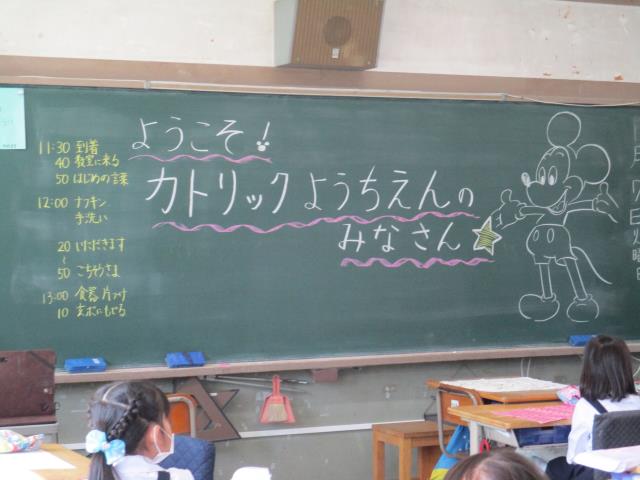 ようこそ!
カトリックようちえんの
みなさん
11:30 到着
40 教室に来る
50 はじめの言葉
12:00 ナフキン
手洗い
20 いただきます
〜
50 ごちそうさま
13:00 食器片づけ
10 えほんにもどる
月
日
曜